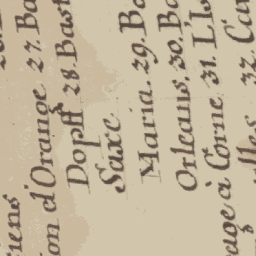 iens
ion d'Orange 27. Ba
Dopff 28. Bast
Saxe
Maria. 29. Ba
Orleans. 30. Ba
rage à Corne 31. L'I
lles 32. Ca